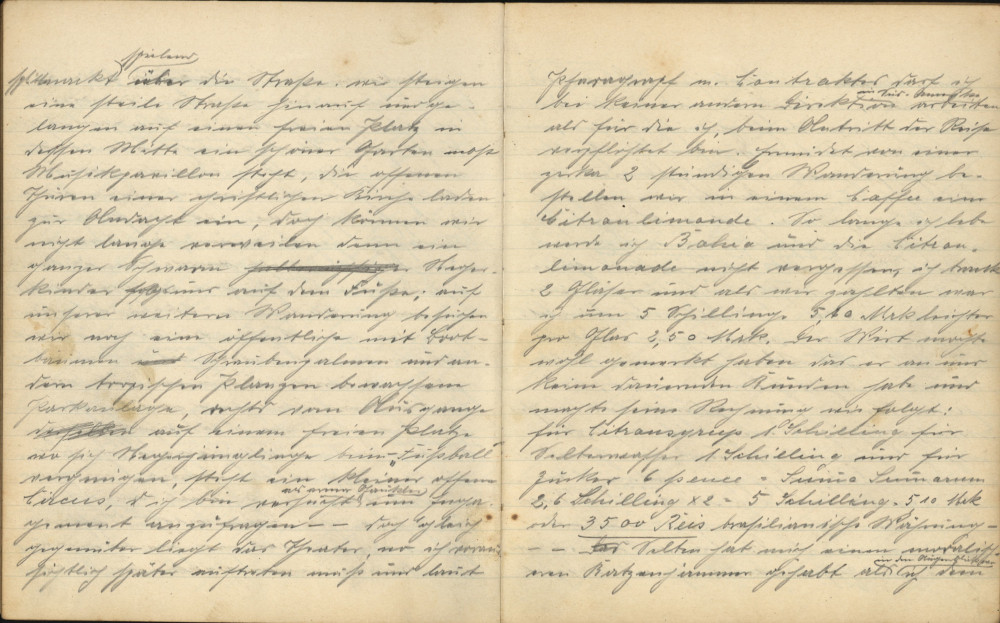 splitternackt spielend über die Straße. wir steigen
eine steile Straße hinauf und ge-
langen auf einen freien Platz in
dessen Mitte ein schöner Garten nebst
Musikpavillon steht, die offenen
Thüren einer christlichen Kirche laden
zur Andacht ein, doch können wir
nicht lange verweilen denn ein
ganzer Schwarm Neger-
kinder folgt uns auf dem Fuße; auf
unserer weitern Wanderung besuchen
wir noch eine öffentliche mit Brot-
bäumen und Schraubenpalmen und an-
dern tropischen Planzen bewachsene
Parkanlage, rechts vom Ausgange
desselben auf einem freien Platze
wo sich Negerjünglinge beim „Fussball
vergnügen, steht ein kleiner offener
Circus, ich bin versucht um Enga-
gement anzufragen – – doch gleich
gegenüber liegt das Theater, wo ich voraus-
sichtlich später auftreten muß und laut
Pharagrapf m. Contraktes darf ich
bei keiner andern Direktion arbeiten
als für die ich, beim Antritt der Reise
verpflichtet bin. Ermüdet von einer
zirka 2 stündigen Wanderung be-
stellen wir in einem Caffee eine
Citronlimonade. So lange ich leb
werde ich Bahia und die Citron-
limonade nicht vergessen, ich trank
2 Gläser und als wir zahlten war
ich um 5 Schillinge 5,10 Mrk leichter
pro Glas 2,50 Mrk. Der Wirt mochte
wohl gemerkt haben das er an uns
keine dauernden Kunden hate und
machte seine Rechnung wie folgt:
für Citronsyrup 1. Schilling für
Selterwasser 1. Schilling und für
Zucker 6 pence – Suma Sumarum
2,6 Schilling x 2 = 5 Schilling = 5 10 Mrk
oder 3500 Reis brasilianische Währung –
– – Selten hat mich einen moralisch
eren Katzenjammer gehabt als in den Augenblicken ich dem